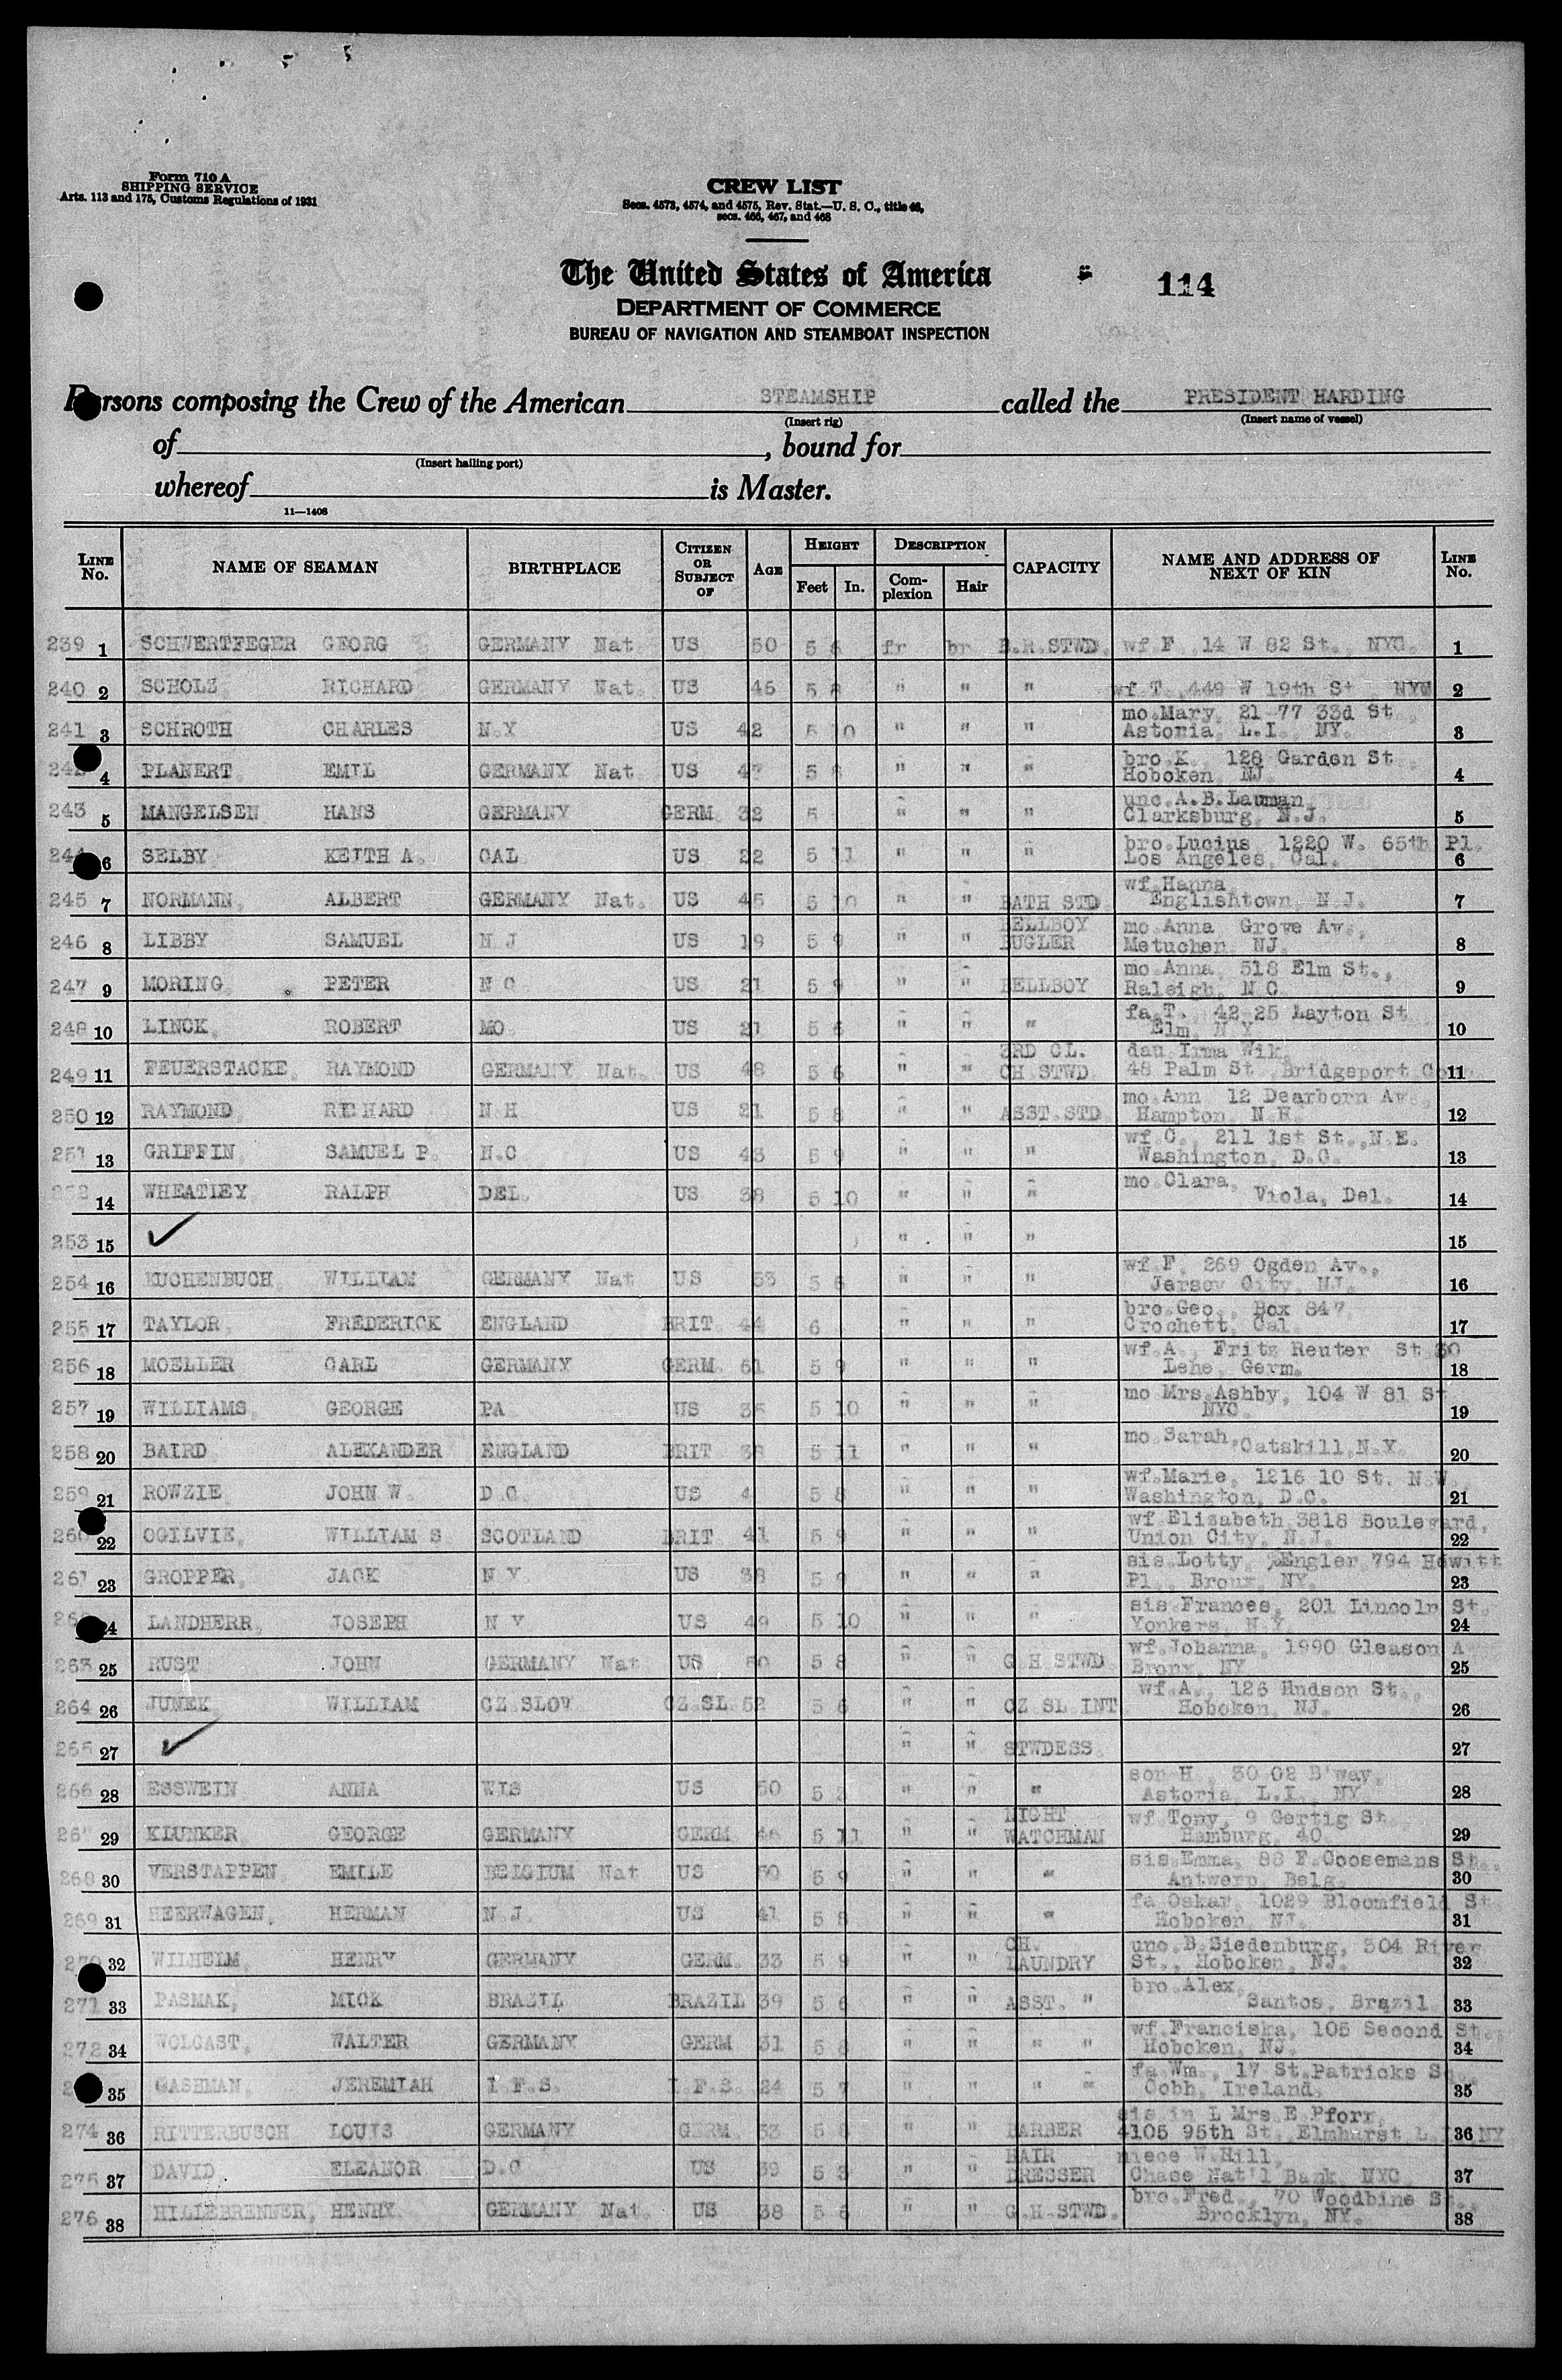 Form 710 A
SHIPPING SERVICE
Arts. 113 and 175, Customs Regulations of 1931
CREW LIST
Secs. 4573, 4574, and 4575, Rev. Stat.—U. S. C., title 46,
secs. 466, 467, and 468
The United States of America
114
DEPARTMENT OF COMMERCE
BUREAU OF NAVIGATION AND STEAMBOAT INSPECTION
Persons composing the Crew of the American STEAMSHIP called the PRESIDENT HARDING
(Insert rig) (Insert name of vessel)
of , bound for
(Insert hailing port)
whereof is Master.
11—1406
LINE No. NAME OF SEAMAN BIRTHPLACE CITIZEN OR SUBJECT OF AGE HEIGHT Feet In. DESCRIPTION Complexion Hair CAPACITY NAME AND ADDRESS OF NEXT OF KIN LINE No.
239 1 SCHWERTFEGER GEORG GERMANY Nat US 50 5 6 fr br B.R.STWD. wf F. 14 W 82 St., NYC. 1
240 2 SCHOLZ RICHARD GERMANY Nat. US 45 5 8 " " " wf T. 449 W 19th St NYC 2
241 3 SCHROTH CHARLES N.Y US 42 5 10 " " " mo.Mary, 21-77 33d St. Astoria, L.I. NY. 3
242 4 PLANERT, EMIL GERMANY Nat US 47 5 8 " " " bro.K. 128 Garden St Hoboken, NJ 4
243 5 MANGELSEN HANS GERMANY GERM. 32 5 " " " unc.A.B.Lauman Clarksburg, N.J. 5
244 6 SELBY KEITH A. CAL US 22 5 11 " " " bro.Lucius, 1220 W. 65th Pl. Los Angeles, Cal. 6
245 7 NORMANN, ALBERT GERMANY Nat. US 45 5 10 " " BATH STD wf.Hanna, Englishtown, N.J. 7
246 8 LIBBY SAMUEL N J US 19 5 9 " " BELLBOY BUGLER mo Anna, Grove Av., Metuchen, NJ. 8
247 9 MORING, PETER N C US 21 5 9 " " BELLBOY mo.Anna, 518 Elm St., Raleigh, N C 9
248 10 LINCK, ROBERT MO. US 21 5 6 " " " fa.T. 42-25 Layton St Elm, N Y 10
249 11 FEUERSTACKE, RAYMOND GERMANY Nat. US 48 5 6 " " 3RD CL. CH STWD dau Irma Wik, 48 Palm St, Bridgeport 11
250 12 RAYMOND RICHARD N H US 21 5 8 " " ASST.STD mo.Ann 12 Dearborn Av. Hampton, N.H. 12
251 13 GRIFFIN, SAMUEL P. N.C US 43 5 9 " " " wf.C. 211 1st St.,N.E. Washington, D.C. 13
252 14 WHEATLEY RALPH DEL. US 38 5 10 " " " mo.Clara, Viola, Del. 14
253 15 " " " 15
254 16 KUCHENBUCH WILLIAM GERMANY Nat US 53 5 6 " " " wf F. 269 Ogden Av., Jersey City, NJ. 16
255 17 TAYLOR, FREDERICK ENGLAND BRIT. 44 6 " " " bro.Geo., Box 847, Crochett, Cal 17
256 18 MOELLER CARL GERMANY GERM. 61 5 9 " " " wf.A., Fritz Reuter St 30 Lehe, Germ. 18
257 19 WILLIAMS, GEORGE PA US 5 10 " " " mo Mrs.Ashby, 104 W 81 St NYC. 19
258 20 BAIRD ALEXANDER ENGLAND BRIT 38 5 11 " " " mo.Sarah, Catskill,N.Y. 20
259 21 ROWZIE JOHN W. D.C. US 4 5 8 " " " wf.Marie, 1216 10 St. N.W. Washington, D.C. 21
260 22 OGILVIE, WILLIAM S SCOTLAND BRIT 41 5 9 " " " wf.Elizabeth,3818 Boulevard, Union City, N.J. 22
261 23 GROPPER, JACK N Y. US 38 5 9 " " " sis.Lotty, Engler,794 Hewitt Pl., Bronx, NY. 23
24 LANDHERR, JOSEPH N Y US 49 5 10 " " " sis.Frances, 201 Lincoln St. Yonkers, N.Y. 24
263 25 RUST JOHN GERMANY Nat US 50 5 8 " " G H STWD. wf.Johanna, 1990 Gleason A Bronx, NY 25
264 26 JUNEK, WILLIAM CZ SLOV CZ SL 52 5 6 " " CZ SL INT wf.A., 126 Hudson St., Hoboken, NJ. 26
265 27 " " STWDESS. 27
266 28 ESSWEIN ANNA WIS US 50 5 3 " " " son H., 30 02 B'way, Astoria, L.I., NY 28
29 KLUNKER, GEORGE GERMANY GERM. 46 5 11 " " NIGHT WATCHMAN wf Tony, 9 Gertig St. Hamburg, 40 29
268 30 VERSTAPPEN, EMILE BELGIUM Nat US 50 5 9 " " " sis.Emma, 88 F.Coosemans St. Antwerp, Belg. 30
269 31 HEERWAGEN, HERMAN N.J. US 41 5 8 " " " fa Oskar, 1029 Bloomfield St Hoboken, NJ. 31
270 32 WILHELM, HENRY GERMANY GERM. 33 5 9 " " CH. LAUNDRY unc.B.Siedenburg, 304 River St., Hoboken, NJ. 32
271 33 PASMAK, MICK BRAZIL BRAZIL 39 5 6 " " ASST. " bro.Alex, Santos, Brazil 33
272 34 WOLGAST, WALTER GERMANY GERM 31 5 8 " " " " wf.Franciska, 105 Second St., Hoboken, NJ. 34
35 GASHMAN, JEREMIAH I.F.S. I.F.S. 24 5 7 " " " " fa.Wm., 17 St.Patricks Sq. Cobh, Ireland. 35
274 36 RITTERBUSCH LOUIS GERMANY GERM. 53 5 8 " " BARBER sis in L Mrs.E.Pforr, 4105 95th St. Elmhurst L I NY 36
275 37 DAVID ELEANOR D.C US 39 5 3 " " HAIR DRESSER niece W.Hill, Chase Nat'l Bank, NYC. 37
276 38 HILLEBRENNER, HENRY. GERMANY Nat. US 38 5 6 " " G.H.STWD. bro.Fred., 70 Woodbine St., Brooklyn, NY. 38